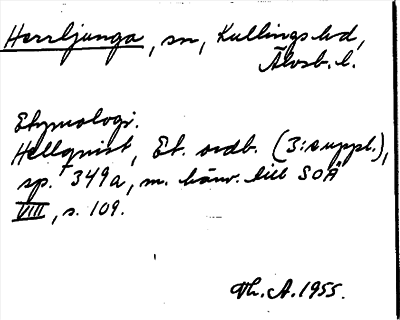 Herrljunga, sn, Kullings hd,
Älvsb. l.
Etymologi.
Hellquist, Et. ordb. (3:e uppl.),
sp. 349a, m. hänv. till SOÄ
VIII, s. 109.
Vh. A. 1955.